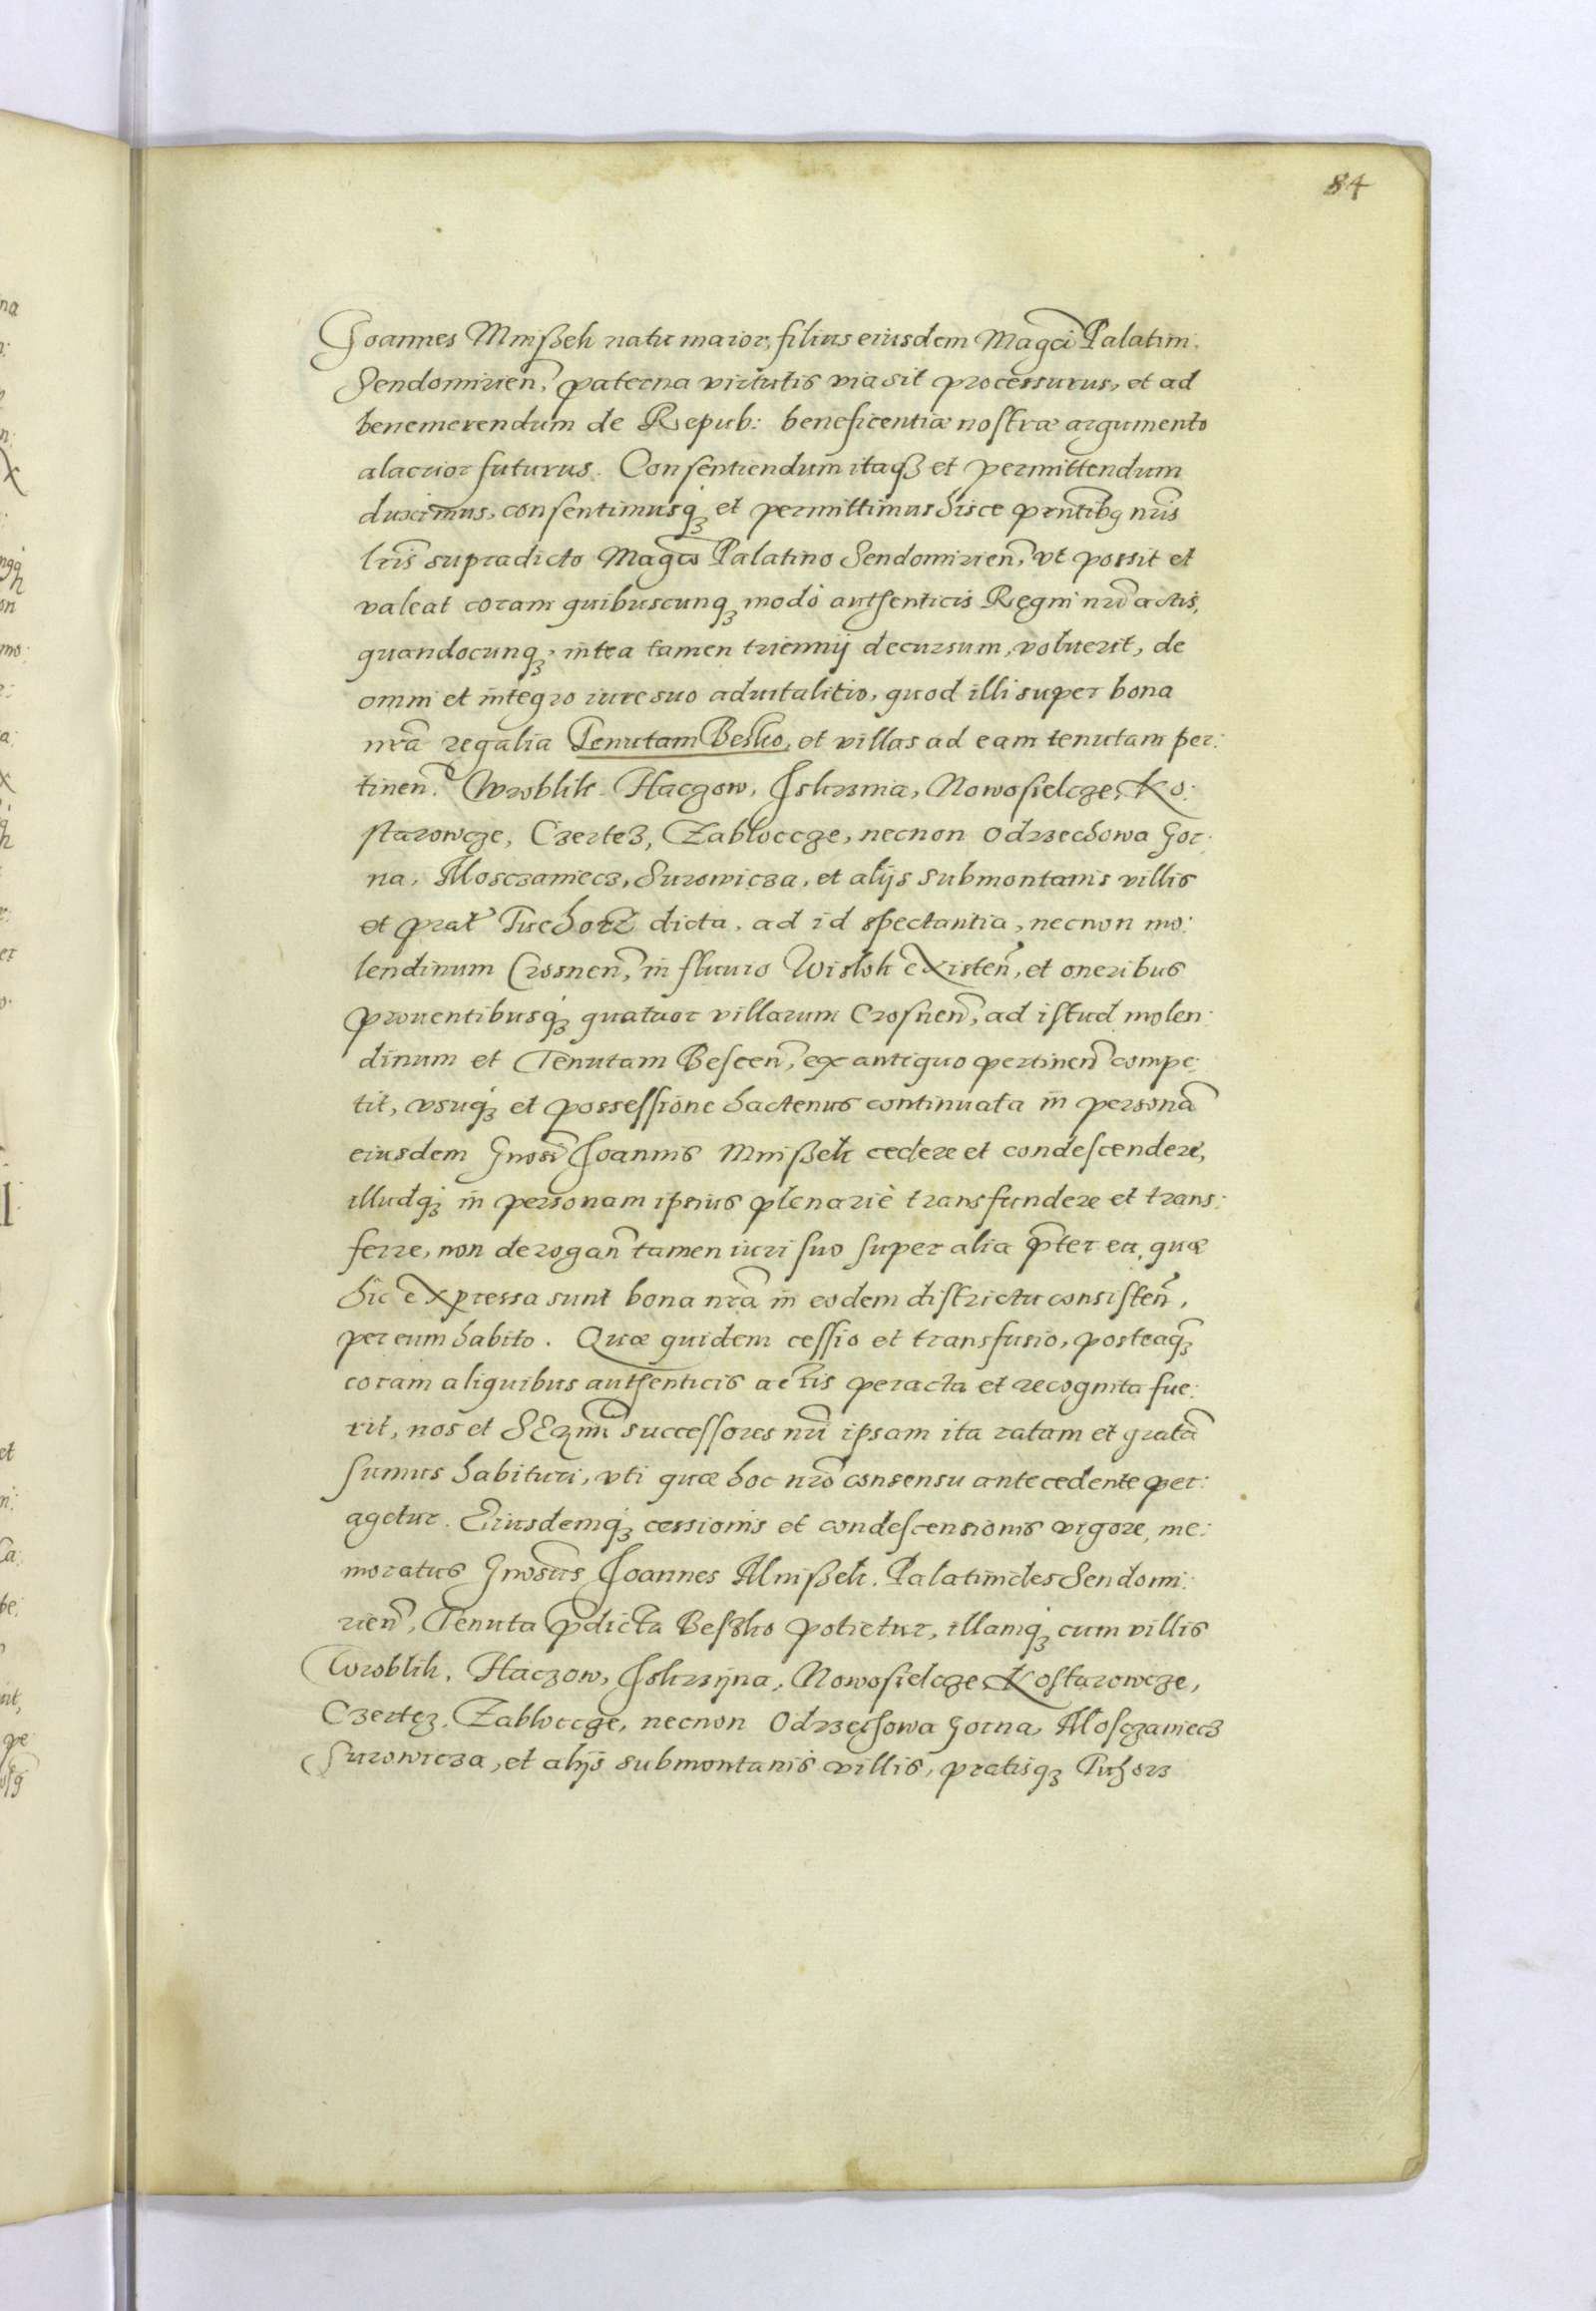 84
Joannes Mnißek natu maior, filius eiusdem Magci Palatini
Sendomirien̄, paterna virtutis via sit processurus, et ad
benemerendum de Repub: beneficentiæ nostræ argumento
alacrior futurus. Consentiendum itaqꝫ et permittendum
duximus, consentimusqꝫ et permittimus hisce prn̄tibq nr̄is
lrīs supradicto Magco Palatino Sendomirien̄, vt possit et
valeat coram quibuscunqꝫ modò authenticis Regni nrī actis,
quandocunqꝫ, intra tamen triennij decursum, voluerit, de
omni et integro iure suo aduitalitio, quod illi super bona
nrā regalia Tenutam Besko, et villas ad eam tenutam per:
tinen̄. Wroblik. Haczow, Iskrznia, Nowosielcze, Ko:
starowcze, Czertez, Zabłoccze, necnon Odrzechowa Gor:
na, Mosczaniecz, Surowicza, et alijs submontanis villis
et prat Tuchorz dicta, ad id spectantia, necnon mo:
lendinum Crosnen̄, in fluuio Wisłok existen̄, et oneribus
prouentibusqꝫ quatuor villarum Crosnen̄, ad istud molen:
dinum et Tenutam Bescen̄, ex antiquo pertinen̄ compe:
tit, vsuqꝫ et possessione hactenus continuata in personā
eiusdem Gnosi Joannis Mnißek cedere et condescendere,
illudqꝫ in personam ipsius plenariè transfundere et trans:
ferre, non derogan̄ tamen iuri suo super alia p̄ter ea, quæ
hic expressa sunt bona nrā in eodem districtu consisten̄,
per eum habito. Quæ quidem cessio et transfusio, posteaqꝫ
coram aliquibus authenticis actis peracta et recognita fue:
rit, nos et SEꝛmi successores nrī ipsam ita ratam et gratā
sumus habituri, vti quæ hoc nrō consensu antecedente per:
agetur. Eiusdemqꝫ cessionis et condescensionis vigore, me:
moratus Gnosus Joannes Mnißek. Palatinides Sendomi:
rien̄, Tenuta p̄dicta Beszko potietur, illamqꝫ cum villis
Wroblik, Haczow, Iskrzÿna, Nowosielcze, Kostarowcze,
Czertez, Zabłoccze, necnon Odrzechowa Gorna, Mosczaniecz
Surowicza, et alijs submontanis villis, pratisqꝫ Tuhorz